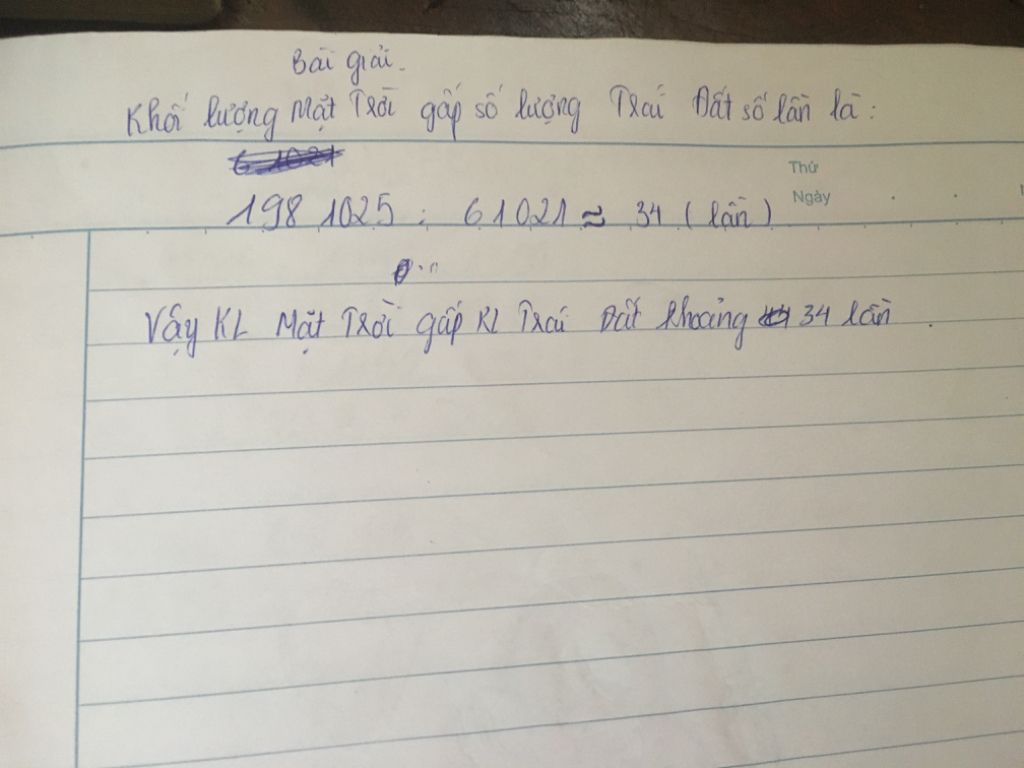 Bài giải.
Khối lượng Mặt Trời gấp số lượng Trái Đất số lần là:
Thứ
Ngày
198 1025 : 61021 ≈ 34 (lần)
Vậy KL Mặt Trời gấp KL Trái Đất khoảng 34 lần.